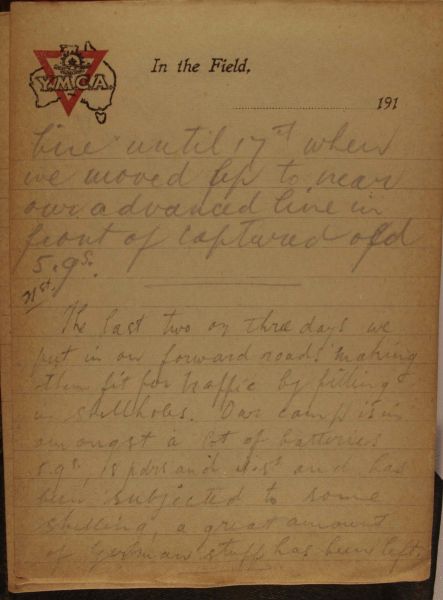 Y.M.C.A.
In the Field,
191
line until 17st when
we moved up to near
our advanced line in
front of captured old
5.9s.
21st.
The last two or three days we
put in on forward roads making
them fit for traffic by filling
in shellholes. Our camp is in
amongst a lot of batteries
5.9s, 18 pdrs and and has
been subjected to some
shelling, a great amount
of German stuff has been left